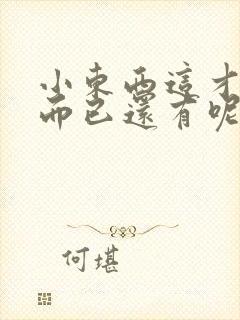 小東西這才
而已還有呢
何堪